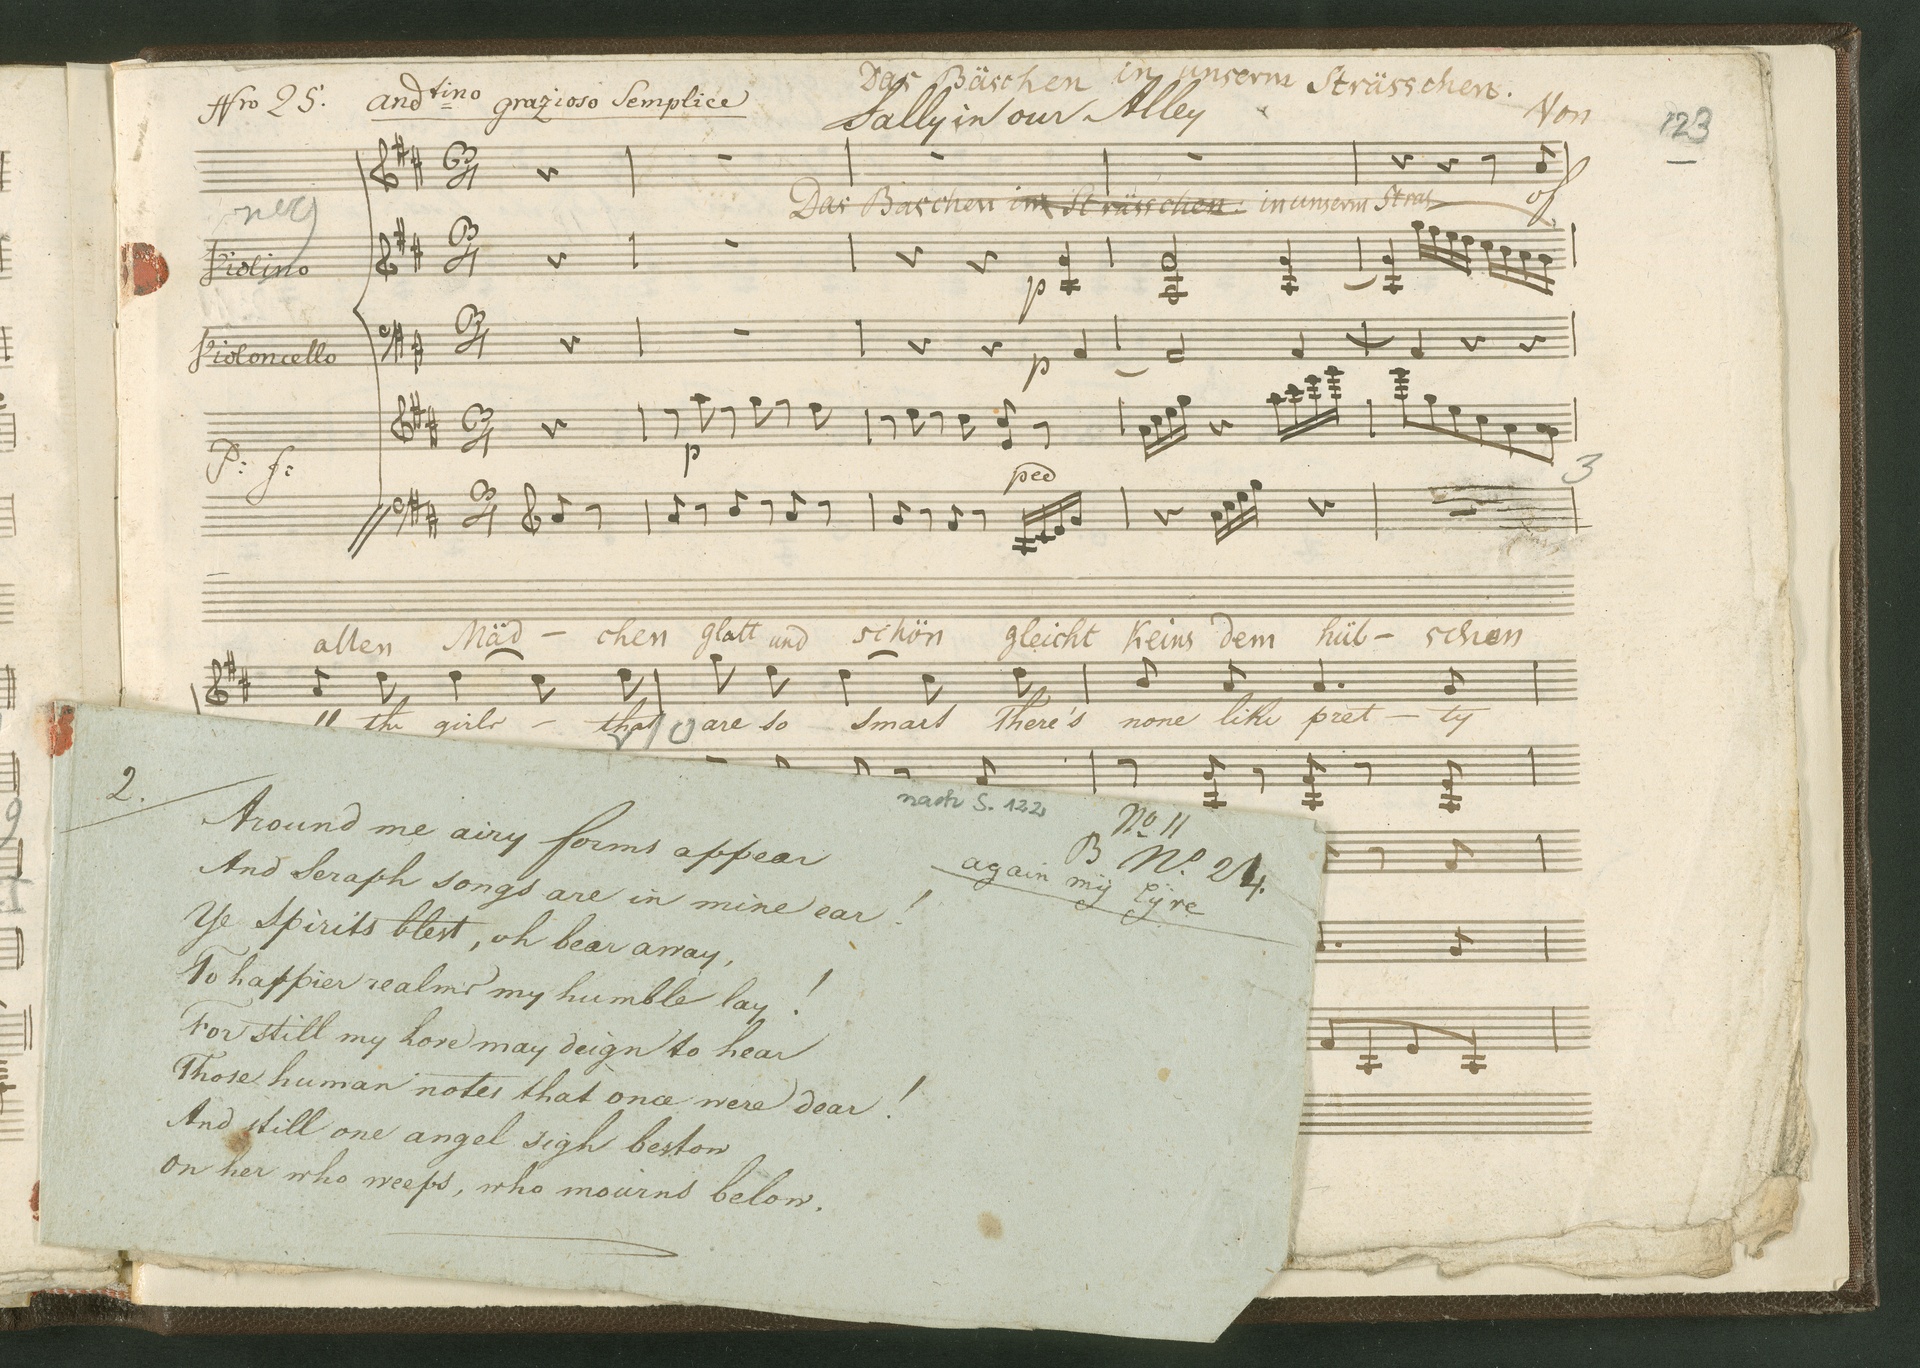 Nro 25. andtino grazioso semplice
Das Bäschen in unserm Strässchen.
Sally in our Alley
Von
123
Das Bäschen im Strässchen. in unserm Stras
of
Violino
p
Violoncello
p
P: f:
p
ped
3
allen Mäd - chen glatt und schön gleicht Keins dem hüb - schen
ll the girls - that are so smart There's none like pret - ty
nach S. 122
No 11
B No. 24.
again mÿ Lÿre
2.
Around me airy forms appear
And Seraph songs are in mine ear!
Ye Spirits blest, oh bear away,
To happier realms my humble lay!
For still my Love may deign to hear
Those human notes that once were dear!
And still one angel sigh bestow
On her who weeps, who mourns below.